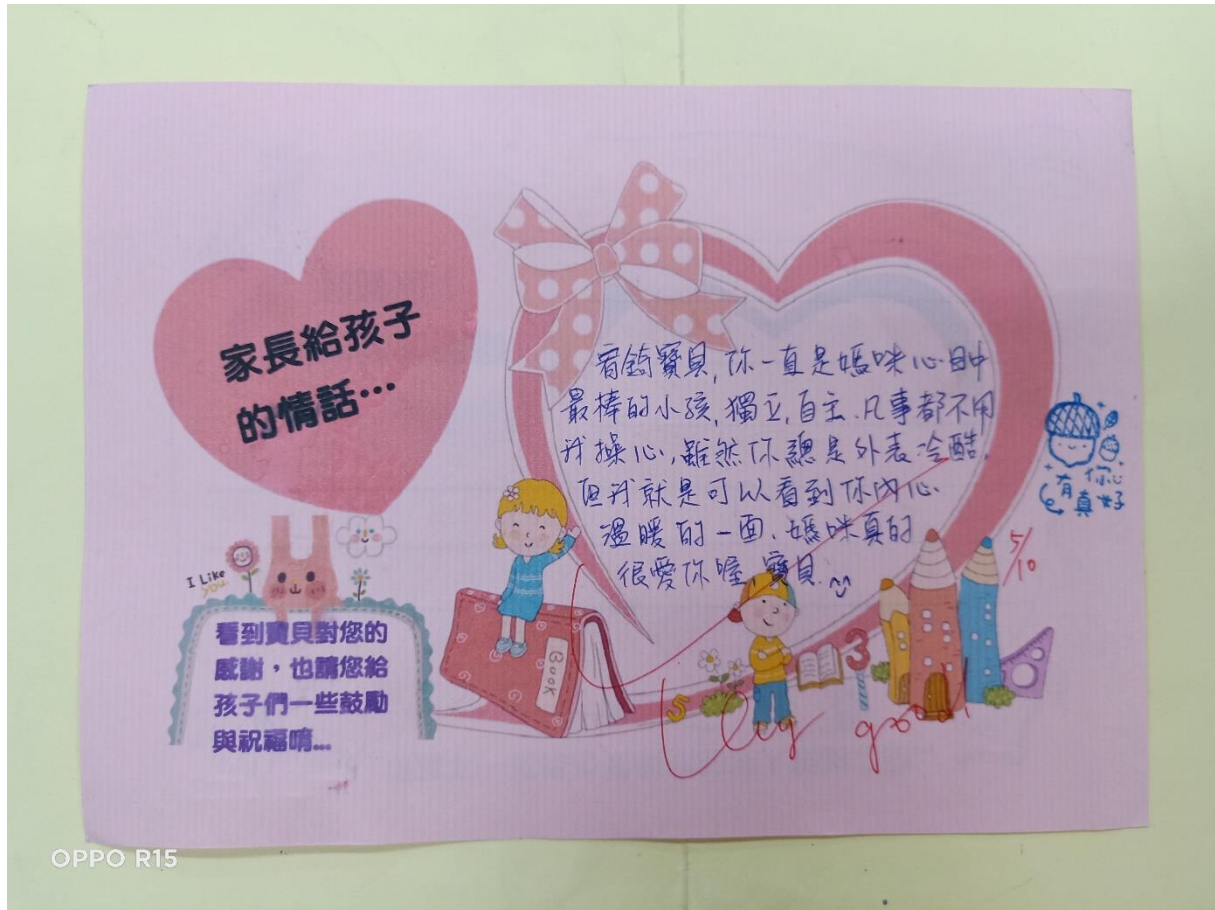 家長給孩子
的情話…
I Like
you
看到寶貝對您的
感謝，也請您給
孩子們一些鼓勵
與祝福唷...
寶貝,你一直是媽咪心目中
最棒的小孩,獨立,自主.凡事都不用
我操心,雖然你總是外表冷酷,
但我就是可以看到你內心.
溫暖的一面.媽咪真的
很愛你喔 寶貝.
有你
真好
5/10
Book
5
3
good
OPPO R15